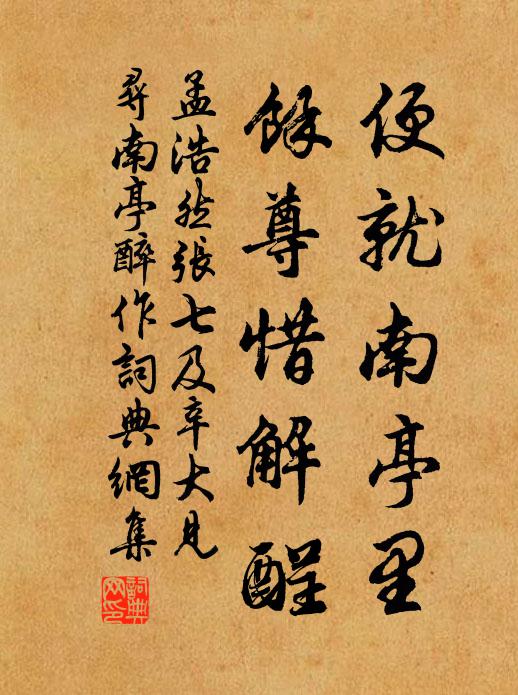 便就南亭里
餘尊惜解酲
孟浩然張七及辛大見
尋南亭醉作詞典網集
詞典網印